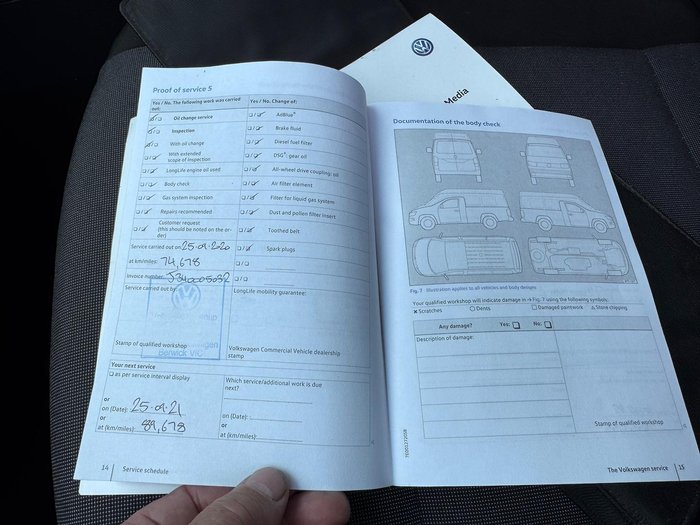 Media
Proof of service 5
Yes / No. The following work was carried out:
Yes / No. Change of:
Oil change service
AdBlue®
Inspection
Brake fluid
With oil change
Diesel fuel filter
With extended scope of Inspection
DSG®: gear oil
LongLife engine oil used
All-wheel drive coupling: oil
Body check
Air filter element
Gas system inspection
Filter for liquid gas system
Repairs recommended
Dust and pollen filter insert
Customer request
(this should be noted on the or-
der)
Toothed belt
Service carried out on:
Spark plugs
at km/miles: 74,678
Invoice number:
Service carried out by:
LongLife mobility guarantee:
Berwick VIC
Stamp of qualified workshop
Volkswagen Commercial Vehicle dealership
stamp
Your next service
as per service interval display
Which service/additional work is due
next?
or
on (Date):
or
at (km/miles): 89,678
on (Date):
or
at (km/miles):
14 Service schedule
Documentation of the body check
Fig. 7 Illustration applies to all vehicles and body designs
Your qualified workshop will indicate damage in → Fig. 7 using the following symbols:
× Scratches
Dents
Damaged paintwork
Stone chipping
Any damage? Yes: No:
Description of damage:
Stamp of qualified workshop
The Volkswagen service 15